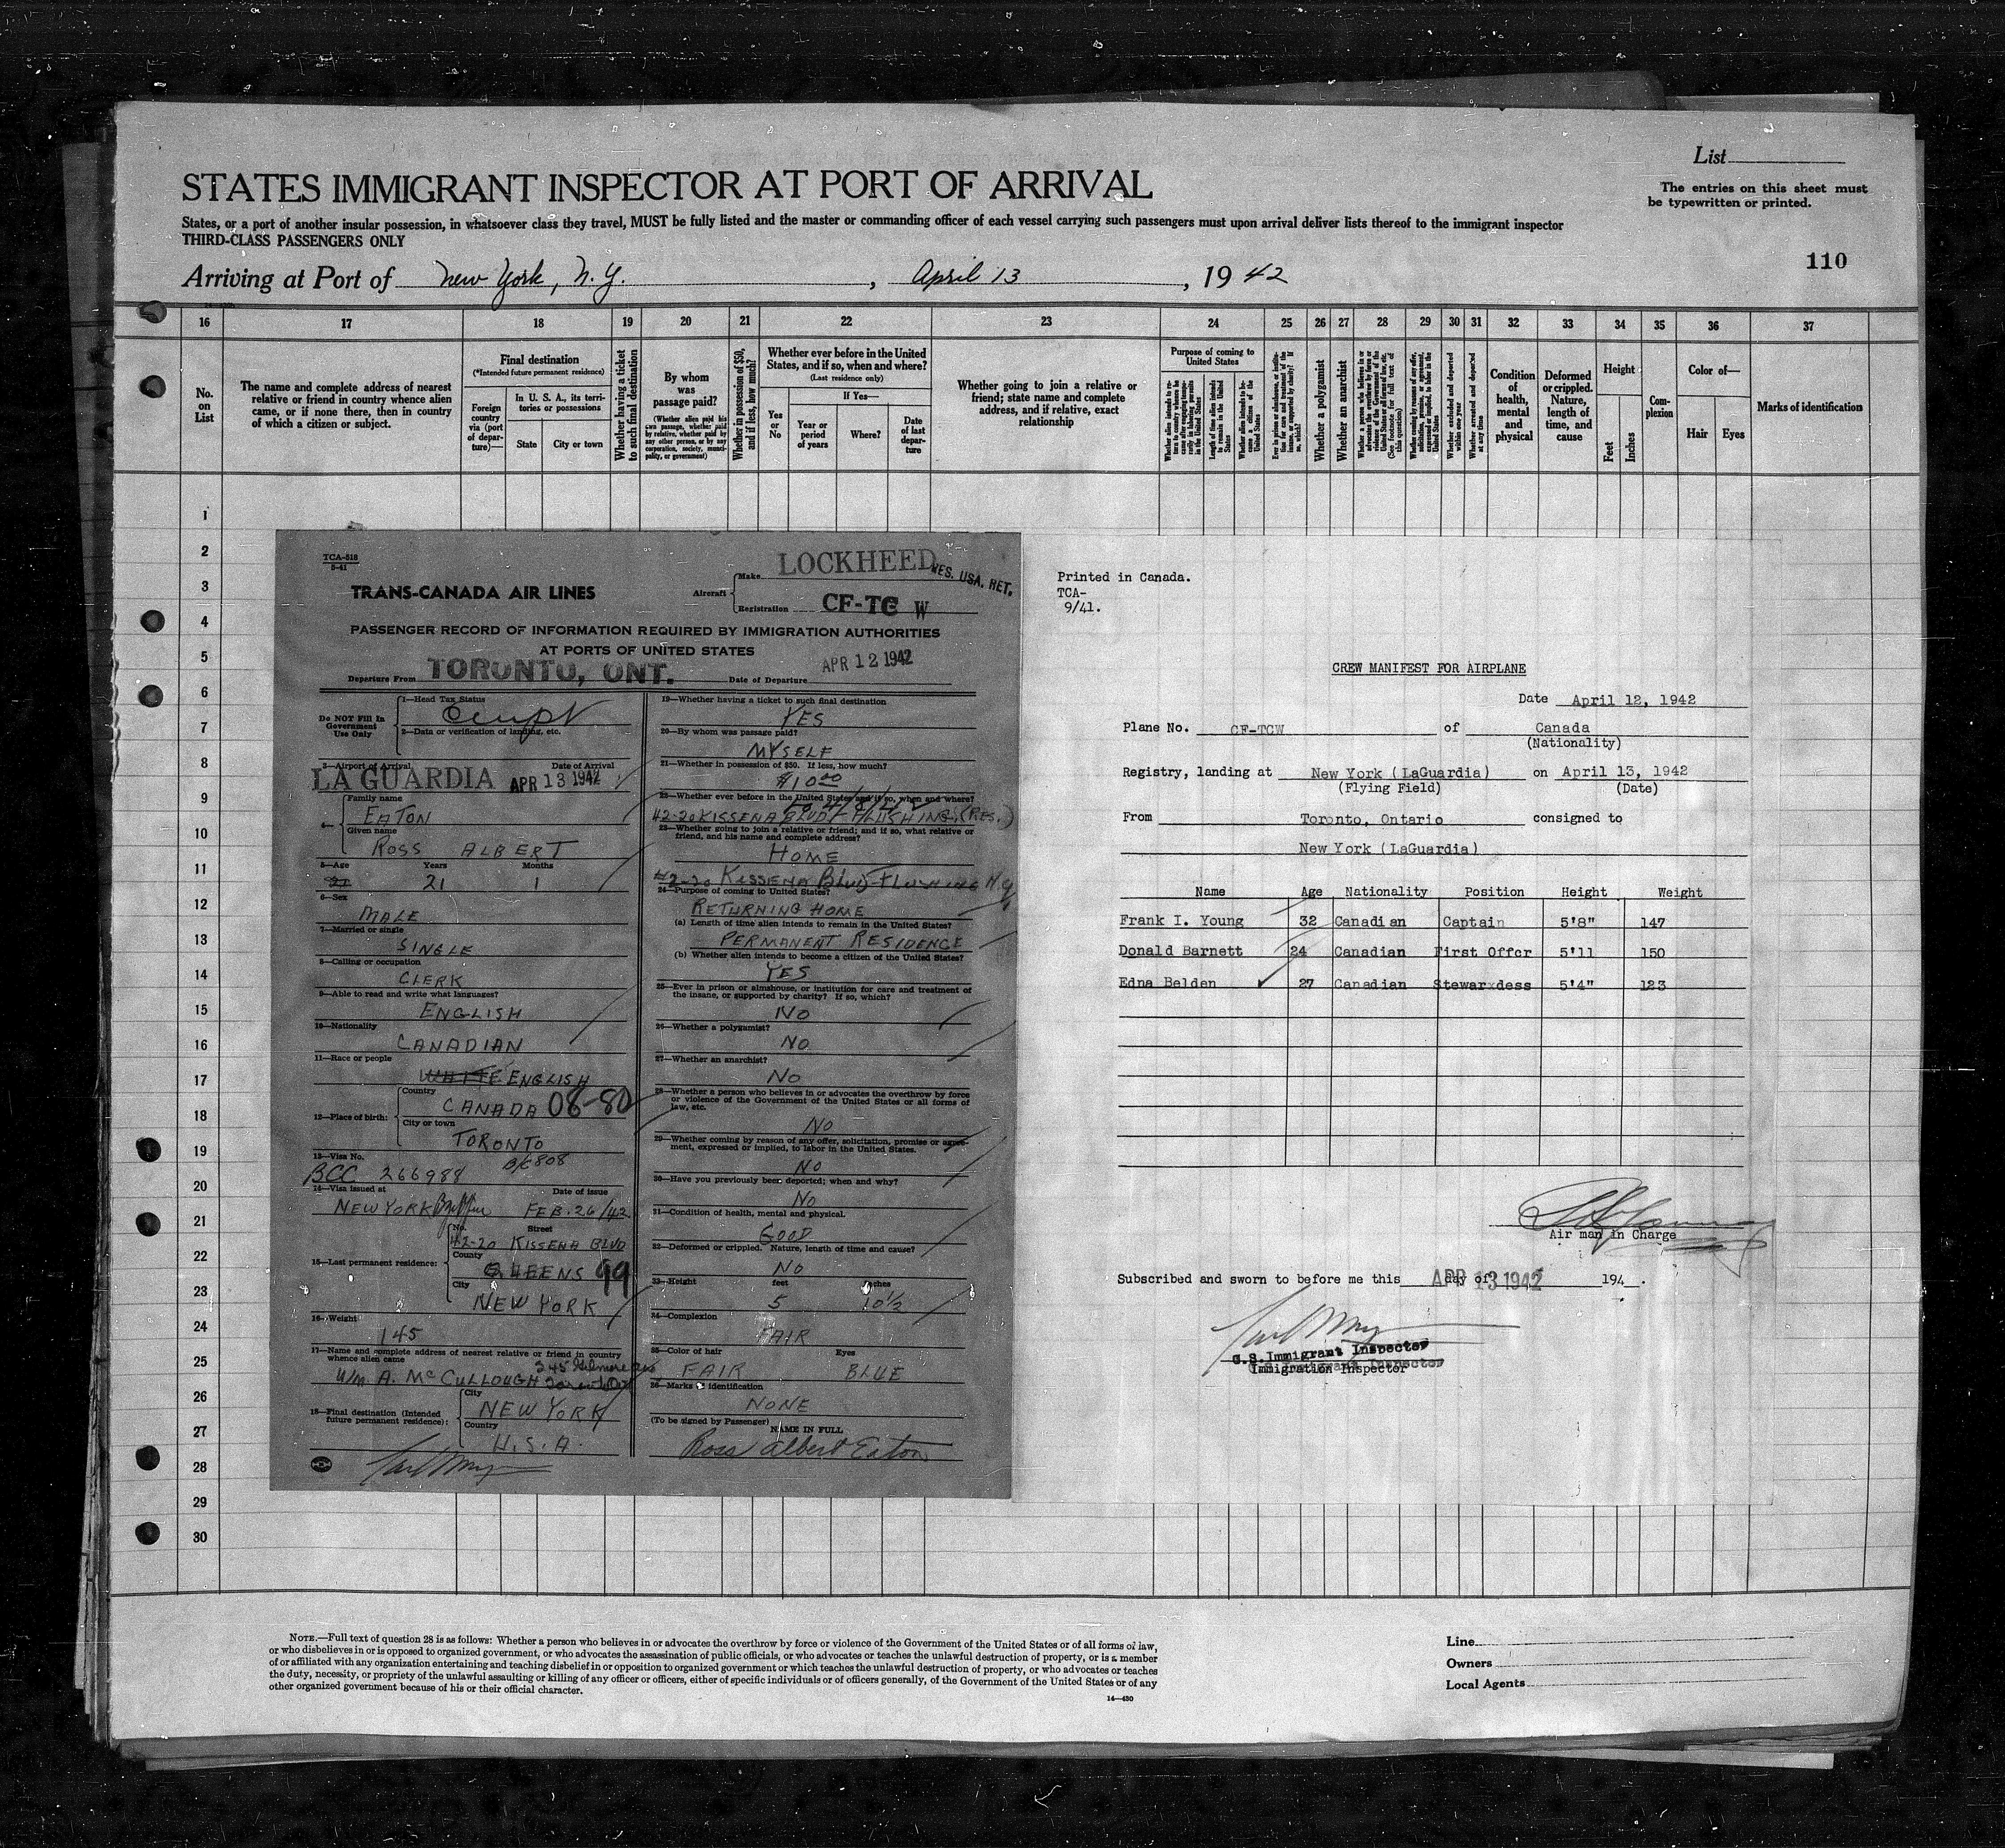 List
STATES IMMIGRANT INSPECTOR AT PORT OF ARRIVAL
The entries on this sheet must
be typewritten or printed.
States, or a port of another insular possession, in whatsoever class they travel, MUST be fully listed and the master or commanding officer of each vessel carrying such passengers must upon arrival deliver lists thereof to the immigrant inspector
THIRD-CLASS PASSENGERS ONLY
110
Arriving at Port of New York, N.Y. , April 13 , 1942
16 17 18 19 20 21 22 23 24 25 26 27 28 29 30 31 32 33 34 35 36 37
No. on List
The name and complete address of nearest
relative or friend in country whence alien
came, or if none there, then in country
of which a citizen or subject.
Final destination
(*Intended future permanent residence)
Foreign country via (port of departure)—
In U. S. A., its territories or possessions
State
City or town
Whether having a ticket to such final destination
By whom was passage paid?
(Whether alien paid his own passage, whether paid by relative, whether paid by any other person, or by any corporation, society, municipality, or government)
Whether in possession of $50, and if less, how much?
Whether ever before in the United
States, and if so, when and where?
(Last residence only)
Yes or No
If Yes—
Year or period of years
Where?
Date of last departure
Whether going to join a relative or
friend; state name and complete
address, and if relative, exact
relationship
Purpose of coming to
United States
Length of time alien intends to remain in the United States
Whether a polygamist
Whether an anarchist
Condition of health, mental and physical
Deformed or crippled. Nature, length of time, and cause
Height
Feet
Inches
Complexion
Color of—
Hair
Eyes
Marks of identification
1
2
3
4
5
6
7
8
9
10
11
12
13
14
15
16
17
18
19
20
21
22
23
24
25
26
27
28
29
30
TCA-518
5-41
TRANS-CANADA AIR LINES
Aircraft
Make LOCKHEED
RES. USA. RET.
Registration CF-TC W
PASSENGER RECORD OF INFORMATION REQUIRED BY IMMIGRATION AUTHORITIES
AT PORTS OF UNITED STATES
Departure From TORONTO, ONT. Date of Departure APR 12 1942
Do NOT Fill In
Government
Use Only
1—Head Tax Status
2—Data or verification of landing, etc.
3—Airport of Arrival Date of Arrival
LA GUARDIA APR 13 1942
4—
Family name
EATON
Given name
ROSS ALBERT
5—Age Years Months
21 21 1
6—Sex
MALE
7—Married or single
SINGLE
8—Calling or occupation
CLERK
9—Able to read and write what languages?
ENGLISH
10—Nationality
CANADIAN
11—Race or people
WHITE ENGLISH
12—Place of birth:
Country
CANADA 08-80
City or town
TORONTO
13—Visa No.
BCC 266988
14—Visa issued at Date of issue
NEW YORK FEB. 26/42
15—Last permanent residence:
No. Street
42-20 KISSENA BLVD
County
QUEENS 99
City
NEW YORK
16—Weight
145
17—Name and complete address of nearest relative or friend in country
whence alien came
345 Gilmore
Wm A. McCULLOUGH
18—Final destination (Intended
future permanent residence):
City
NEW YORK
Country
U.S.A.
19—Whether having a ticket to such final destination
YES
20—By whom was passage paid?
MYSELF
21—Whether in possession of $50. If less, how much?
$10.00
22—Whether ever before in the United States and if so, when and where?
42-20 KISSENA BLVD FLUSHING (RES.)
23—Whether going to join a relative or friend; and if so, what relative or
friend, and his name and complete address?
HOME
42-20 KISSENA BLVD FLUSHING N.Y.
24—Purpose of coming to United States?
RETURNING HOME
(a) Length of time alien intends to remain in the United States?
PERMANENT RESIDENCE
(b) Whether alien intends to become a citizen of the United States?
YES
25—Ever in prison or almshouse, or institution for care and treatment of
the insane, or supported by charity? If so, which?
NO
26—Whether a polygamist?
NO
27—Whether an anarchist?
NO
28—Whether a person who believes in or advocates the overthrow by force
or violence of the Government of the United States or all forms of
law, etc.
NO
29—Whether coming by reason of any offer, solicitation, promise or agree-
ment, expressed or implied, to labor in the United States.
NO
30—Have you previously been deported; when and why?
NO
31—Condition of health, mental and physical.
GOOD
32—Deformed or crippled. Nature, length of time and cause?
NO
33—Height feet inches
5 10 1/2
34—Complexion
FAIR
35—Color of hair Eyes
FAIR BLUE
36—Marks of identification
NONE
(To be signed by Passenger)
NAME IN FULL
Ross Albert Eaton
Printed in Canada.
TCA-
9/41.
CREW MANIFEST FOR AIRPLANE
Date April 12, 1942
Plane No. CF-TCW of Canada
(Nationality)
Registry, landing at New York (LaGuardia) on April 13, 1942
(Flying Field) (Date)
From Toronto, Ontario consigned to
New York (LaGuardia)
Name Age Nationality Position Height Weight
Frank I. Young 32 Canadian Captain 5'8" 147
Donald Barnett 24 Canadian First Offcr 5'11 150
Edna Belden 27 Canadian Stewarxdess 5'4" 123
Air man in Charge
Subscribed and sworn to before me this day of APR 13 1942 194 .
U.S. Immigrant Inspector
Immigration Inspector
NOTE.—Full text of question 28 is as follows: Whether a person who believes in or advocates the overthrow by force or violence of the Government of the United States or of all forms of law,
or who disbelieves in or is opposed to organized government, or who advocates the assassination of public officials, or who advocates or teaches the unlawful destruction of property, or is a member
of or affiliated with any organization entertaining and teaching disbelief in or opposition to organized government or which teaches the unlawful destruction of property, or who advocates or teaches
the duty, necessity, or propriety of the unlawful assaulting or killing of any officer or officers, either of specific individuals or of officers generally, of the Government of the United States or of any
other organized government because of his or their official character.
14—430
Line
Owners
Local Agents